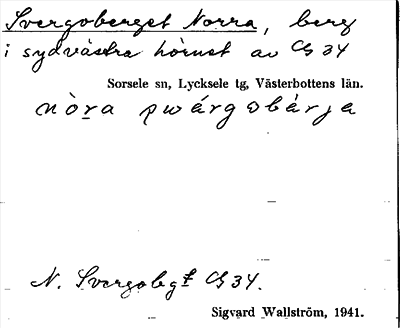 Svergoberget Norra, berg
i sydvästra hörnet av Cg 34
Sorsele sn, Lycksele tg, Västerbottens län.
N. Svergobgt Cg 34.
Sigvard Wallström, 1941.